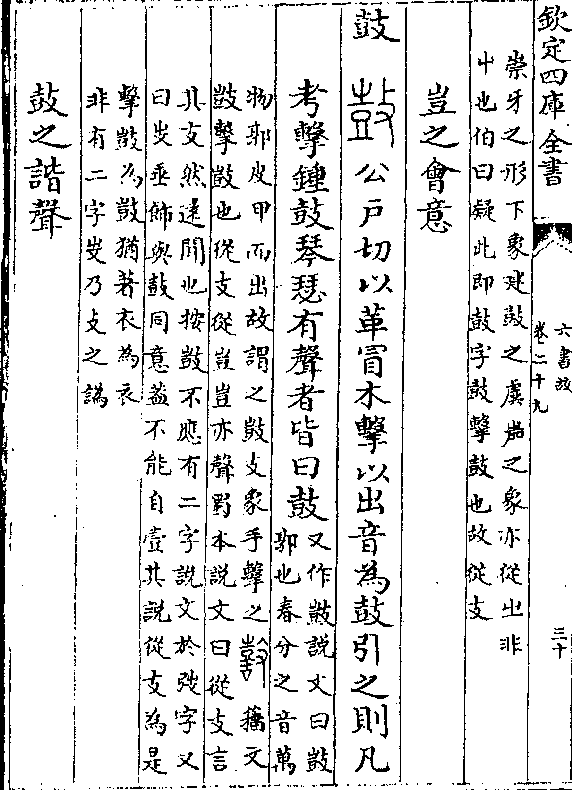 欽定四庫全書
六書故
卷二十九
三十
崇牙之形下象建鼓之虡岀之象亦從出非
屮也伯曰疑此即鼓字鼓擊鼓也故從支
豈之會意
鼓 鼓公戶切以革冒木擊以出音為鼓引之則凡
考擊鍾鼓琴瑟有聲者皆曰鼓又作鼔說文曰鼓
郭也春分之音萬
物郭皮甲而出故謂之鼓支象手擊之 籒文
鼓擊鼓也從支從豈豈亦聲蜀本說文曰從支言
其支然遠聞也按鼓不應有二字說文於弢字又
曰㞢垂飾與鼓同意葢不能自壹其說從支為是
擊鼓為鼓猶著衣為衣
非有二字㞢乃支之譌
鼓之諧聲